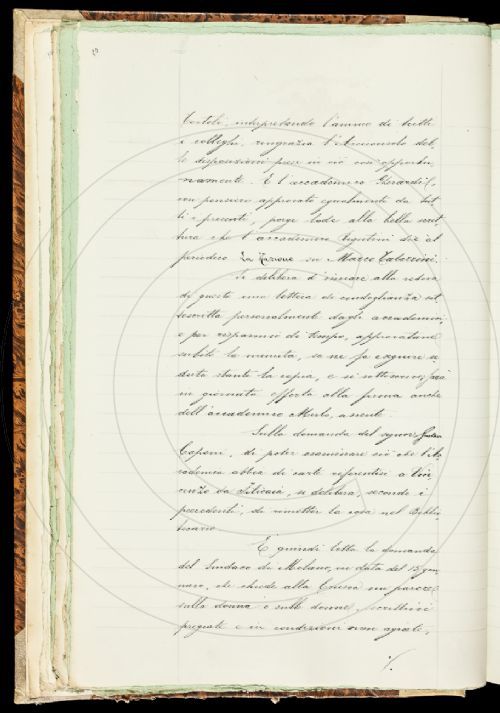 interpretando l'animo di tutti
i colleghi, ringrazia l'Arciconsolo del-
le disposizioni prese in ciò così opportu-
namente. E l'accademico Gherardi,
con pensiero approvato egualmente da tut-
ti i presenti, porge lode alla bella scrit-
tura che l'accademico Rigutini diè al
periodico La Nazione su Marco Tabarrini.
Si delibera d'inviare alla vedova
di questo una lettera di condoglianza sot-
toscritta personalmente dagli accademici;
e per risparmio di tempo, approvatane
subito la minuta, se ne fa eseguire se-
duta stante la copia, e si sottoscrive, 
in giornata offerta alla firma anche
dell'accademico Merlo, assente.
Sulla domanda del signor
Caponi, di poter esaminare ciò che l'Ac-
cademia abbia di carte referentisi a Vin-
cenzo da Filicaia, si delibera, secondo i
precedenti, di rimetter la cosa nel Biblio-
tecario.
È quindi letta la domanda
del Sindaco di Milano, in data del 15 gen-
naio, che chiede alla Crusca un parere
sulla donna o sulle donne scrittrici
pregiate e in condizioni non agiate,
./.